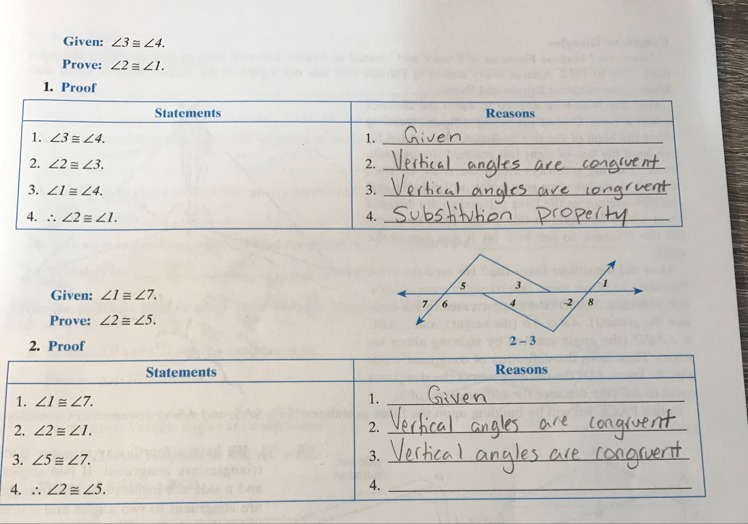 Given: ∠3 ≅ ∠4.
Prove: ∠2 ≅ ∠1.
1. Proof
Statements Reasons
1. ∠3 ≅ ∠4. 1. Given
2. ∠2 ≅ ∠3. 2. Vertical angles are congruent
3. ∠1 ≅ ∠4. 3. Vertical angles are congruent
4. ∴ ∠2 ≅ ∠1. 4. Substitution property
5 3 1
7 6 4 2 8
2–3
Given: ∠1 ≅ ∠7.
Prove: ∠2 ≅ ∠5.
2. Proof
Statements Reasons
1. ∠1 ≅ ∠7. 1. Given
2. ∠2 ≅ ∠1. 2. Vertical angles are congruent
3. ∠5 ≅ ∠7. 3. Vertical angles are congruent
4. ∴ ∠2 ≅ ∠5. 4.